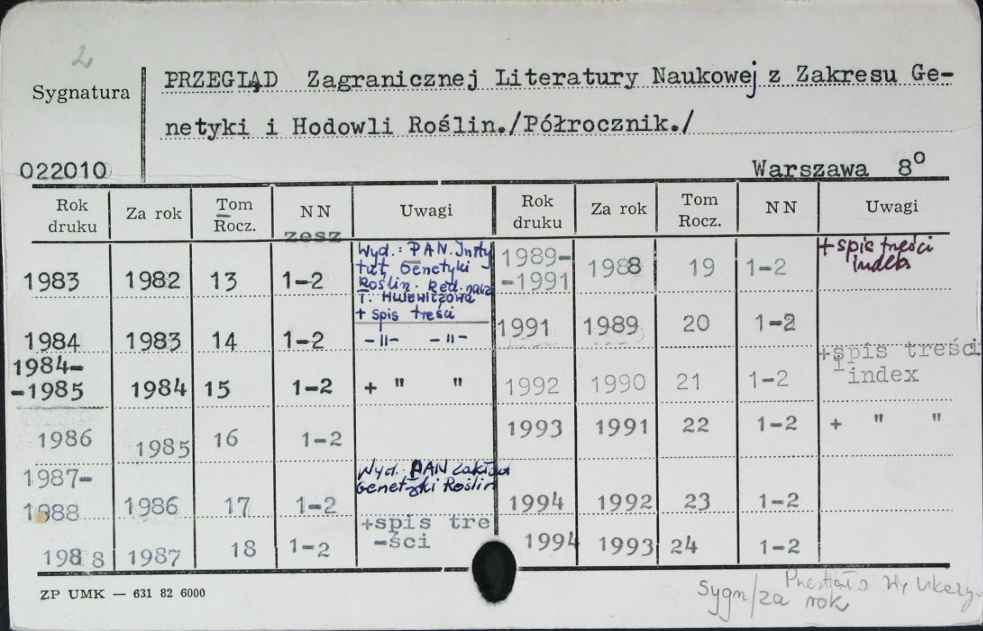 2
Sygnatura
PRZEGLĄD Zagranicznej Literatury Naukowej z Zakresu Ge-
netyki i Hodowli Roślin./Półrocznik./
022010
Warszawa 8º
Rok druku Za rok Tom Rocz. NN Uwagi Rok druku Za rok Tom Rocz. NN Uwagi
zesz
1983 1982 13 1-2
Wyd.: PAN. Insty
tut Genetyki
Roślin. Red. nacz
T. Hulewiczowa
+ spis treści
1989-
-1991 1988 19 1-2
+ spis treści
Indeks
1984 1983 14 1-2 -"- -"-
1991 1989 20 1-2
1984-
-1985 1984 15 1-2 + " "
1992 1990 21 1-2
+spis treści
index
1986 1985 16 1-2
1993 1991 22 1-2 + " "
1987-
1988 1986 17 1-2
Wyd. PAN Zakład
Genetyki Roślin
1994 1992 23 1-2
1988 1987 18 1-2
+spis tre
-ści
1994 1993 24 1-2
ZP UMK — 631 82 6000
Sygn/za rok